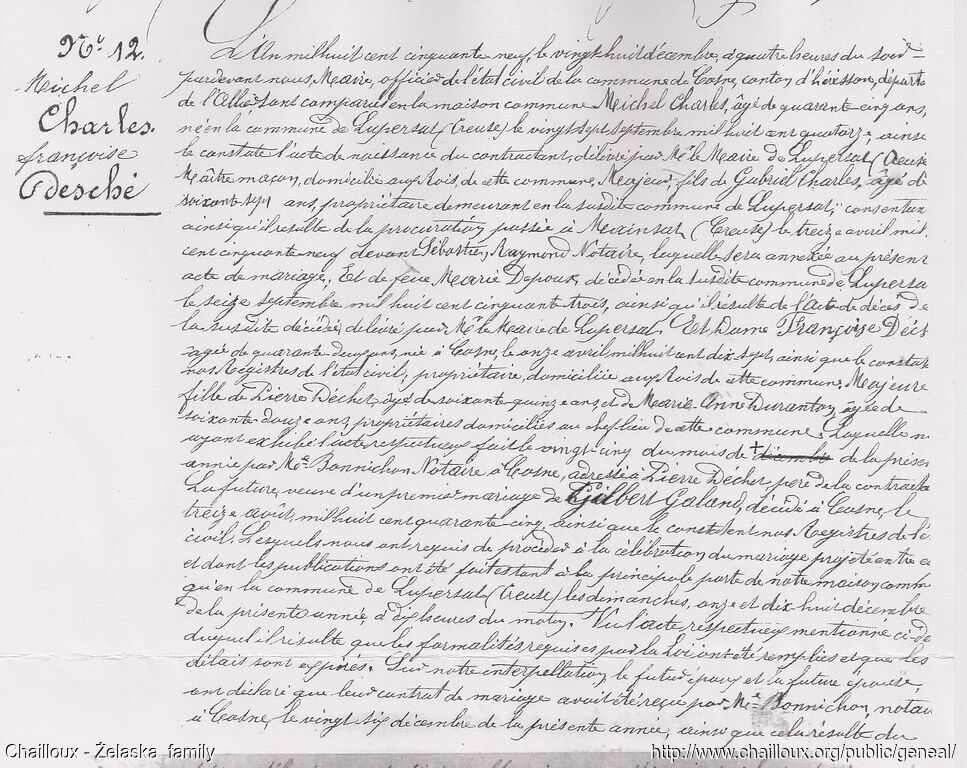 N.º 12.
Michel
Charles.
françoise
Desché
L'An mil huit cent cinquante neuf, le vingt huit décembre, à quatre heures du soir
pardevant nous, Maire, officier de l'état civil de la commune de Cosne, canton d'hérisson, départe
de l'Allier sont comparus en la maison commune Michel Charles, âgé de quarante cinq ans,
né en la commune de Lupersat (Creuse) le vingt sept septembre mil huit cent quatorze, ainsi
le constate l'acte de naissance du contractant, délivré par Mr. le Maire de Lupersat (Creuse
Maître maçon, domicilié aux Bois de cette commune, Majeur, fils de Gabriel Charles, âgé de
soixante sept ans, propriétaire demeurant en la susdite commune de Lupersat, consentant
ainsi qu'il résulte de la procuration passée à Mainsat (Creuse) le treize avril mil
cent cinquante neuf devant Sébastien Raymond Notaire, laquelle sera annexée au présent
acte de mariage. Et de feue Marie Depoux, décédée en la susdite commune de Lupersa
le seize septembre mil huit cent cinquante trois, ainsi qu'il résulte de l'acte de décès de
la susdite décédée, délivré par Mr. le Maire de Lupersat. Et Dame Françoise Déch
âgée de quarante deux ans, née à Cosne, le onze avril mil huit cent dix sept, ainsi que le constate
nos Registres de l'état civil, propriétaire, domiciliée aux Bois de cette commune, Majeure
fille de Pierre Déchet, âgé de soixante quinze ans, et de Marie-Anne Duranton, âgée de
soixante-douze ans, propriétaires domiciliés au chef lieu de cette commune. Laquelle n
ayant exhibé l'acte respectueux fait le vingt-cinq du mois de + décembre de la présen
année par Me. Bonnichon Notaire à Cosne, adressé à Pierre Déchet père de la contracta
La future, veuve d'un premier mariage de Gilbert Galand, décédé à Cosne, le
treize août, mil huit cent quarante cinq, ainsi que le constatent nos Registres de l'é
civil. Lesquels nous ont requis de procéder à la célébration du mariage projeté entre e
et dont les publications ont été faites tant à la principale porte de notre maison comm
qu'en la commune de Lupersat (Creuse) les dimanches, onze et dix-huit décembre
de la présente année, à dix heures du matin. Vu l'acte respectueux mentionné ci-de
duquel il résulte que les formalités requises par la loi ont été remplies et que les
délais sont expirés. Sur notre interpellation, le futur époux et la future épouse,
ont déclaré que leur contrat de mariage avait été reçu par Me. Bonnichon, notai
à Cosne, le vingt six décembre de la présente année, ainsi que cela résulte du
Chailloux - Żelaska family
http://www.chailloux.org/public/geneal/